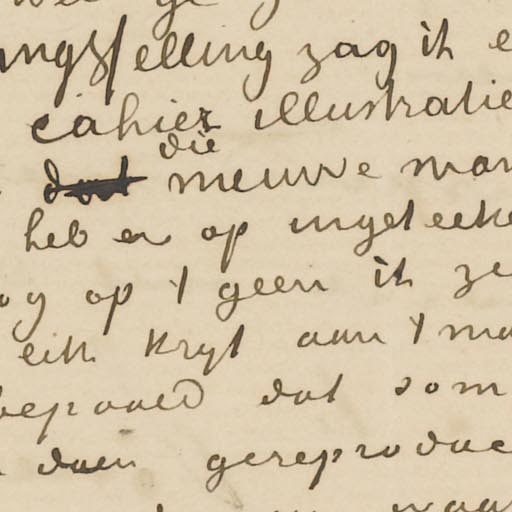 ngstelling zag ik e
cahier illustratie
die
door nieuwe man
heb er op ingeteeke
og op 't geen ik ze
eik krijt aan 't ma
bepaald dat som
doen gereproduc
waar